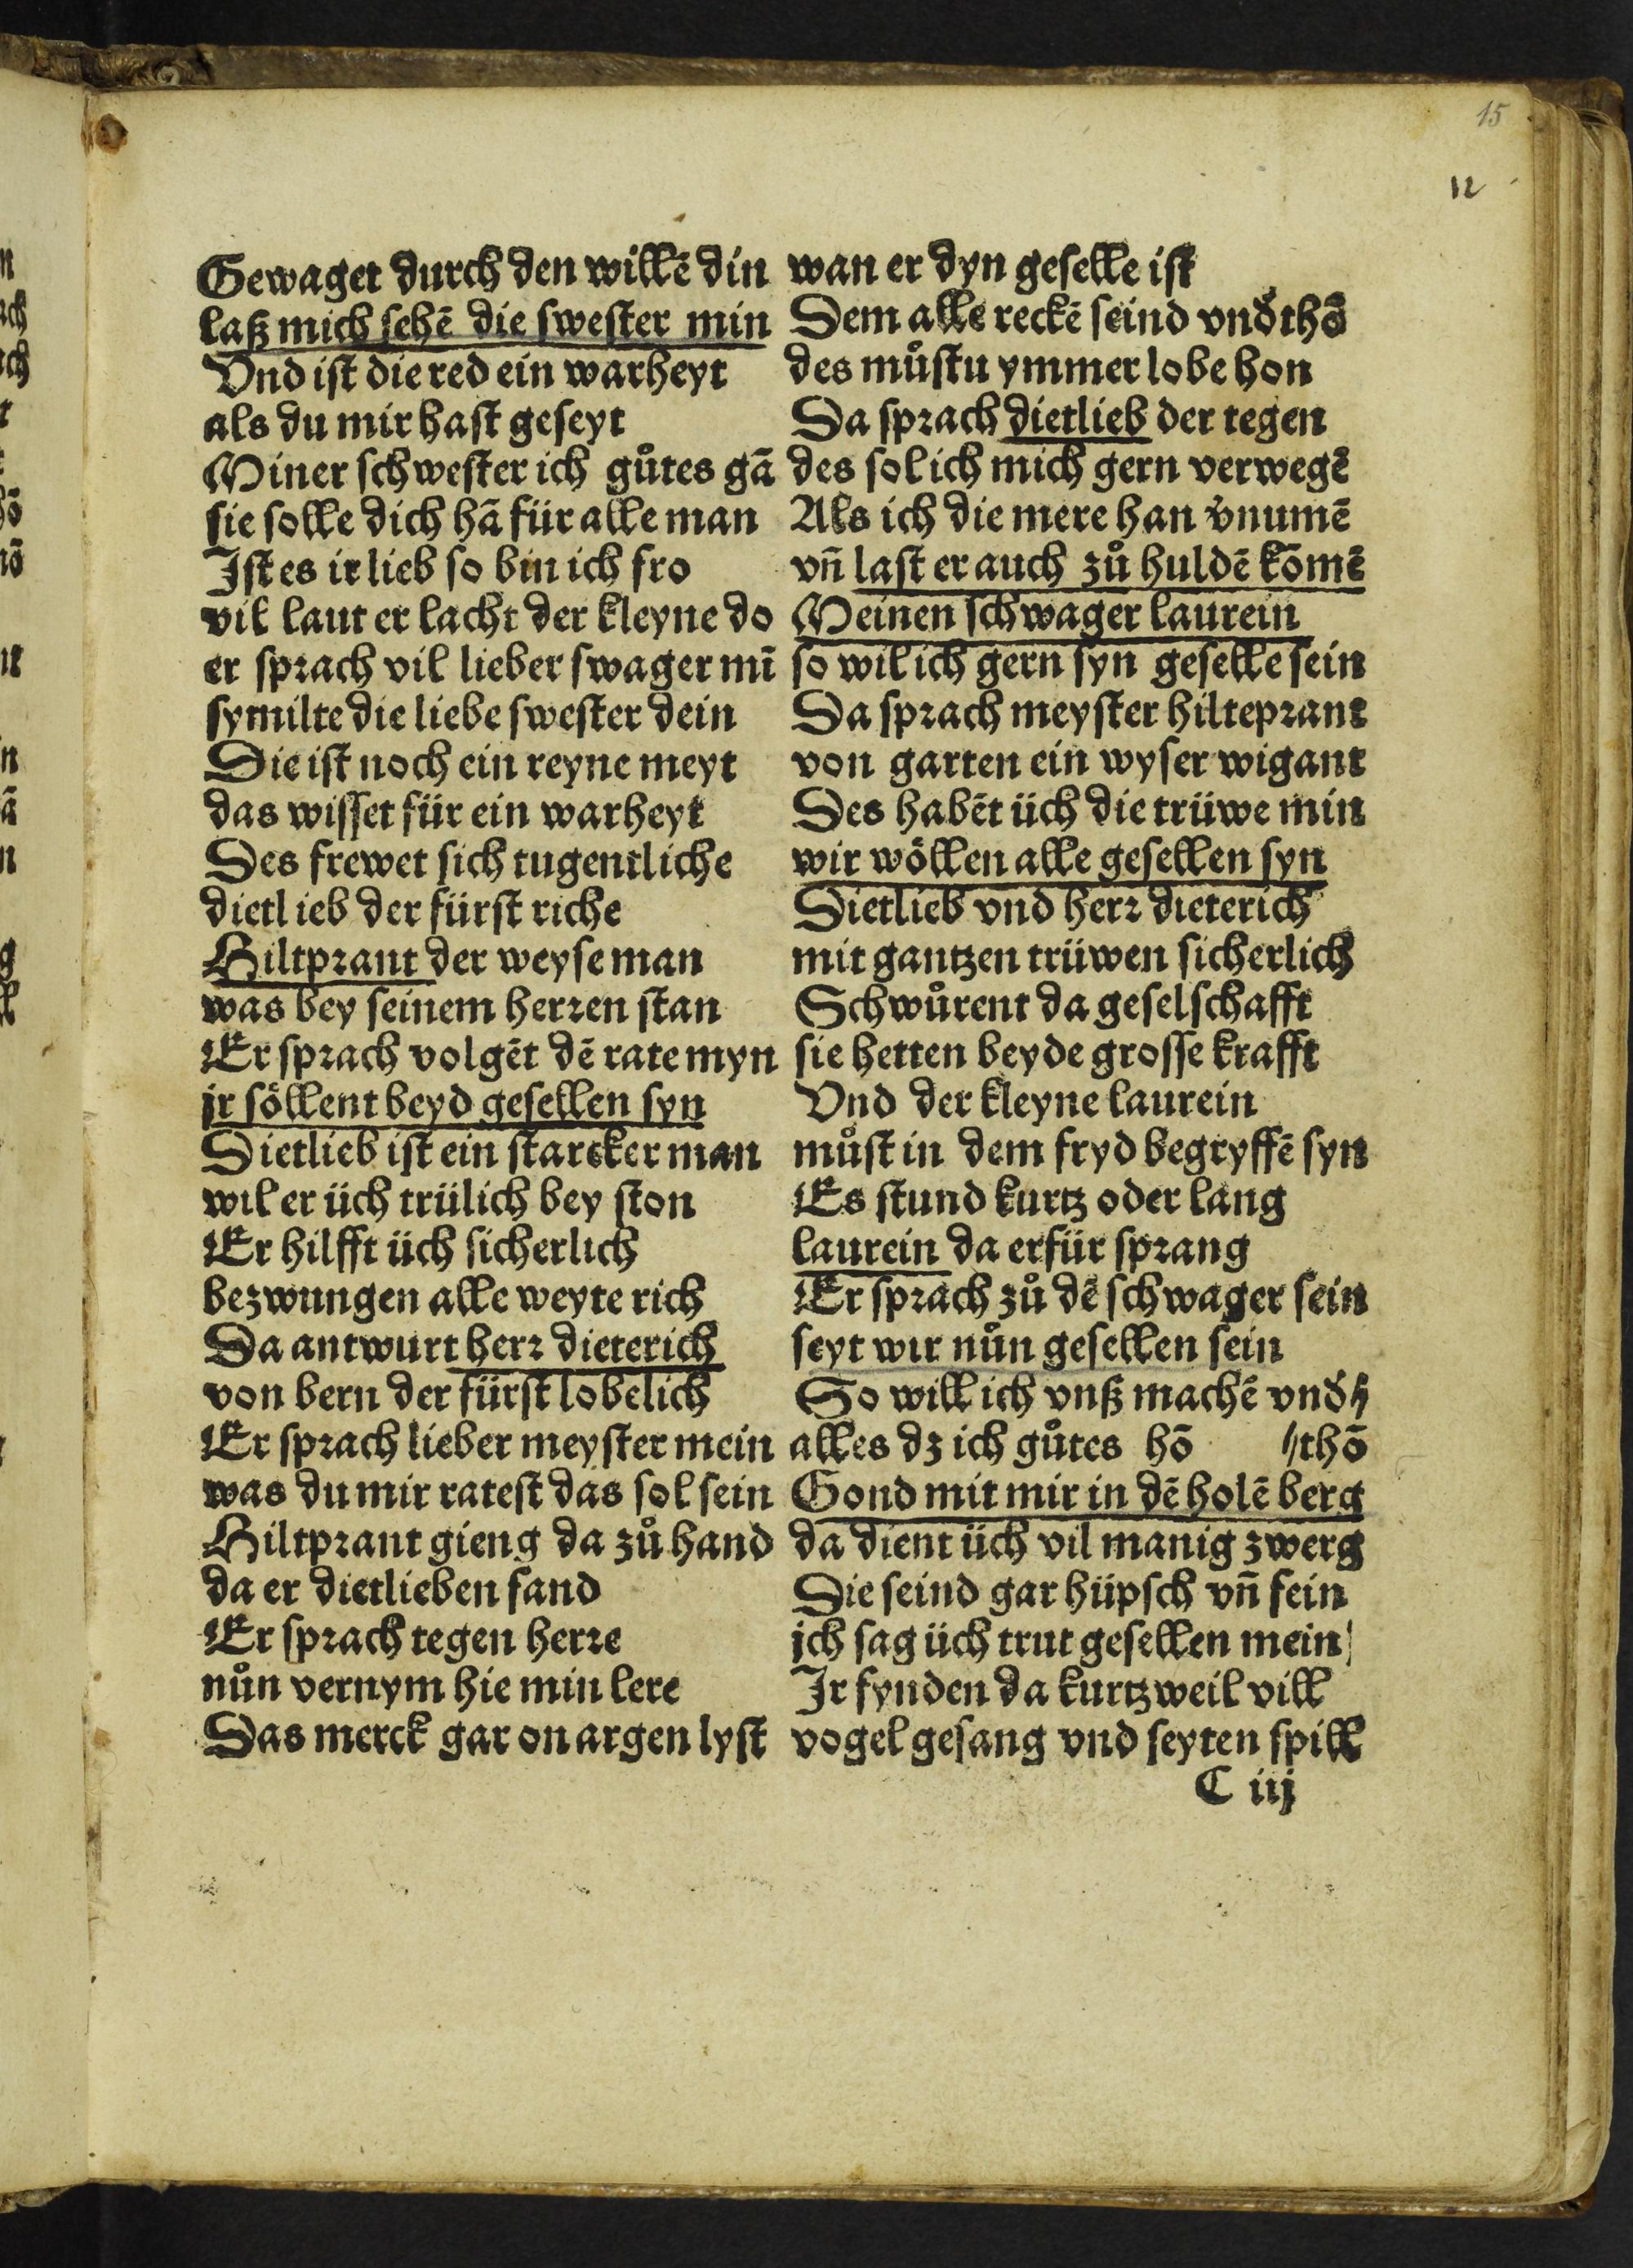 15
12
Gewaget durch den willē din
laß mich sehē die swester min
Vnd ist die red ein warheyt
als du mir hast geseyt
Miner schwester ich gůtes gā
sie solle dich hā für alle man
Ist es ir lieb so bin ich fro
vil laut er lacht der kleyne do
er sprach vil lieber swager mī
symilte die liebe swester dein
Die ist noch ein reyne meyt
das wisset für ein warheyt
Des frewet sich tugentliche
dietlieb der fürst riche
Hiltprant der weyse man
was bey seinem herren stan
Er sprach volgēt dē rate myn
jr söllent beyd gesellen syn
Dietlieb ist ein starcker man
wil er üch trülich bey ston
Er hilfft üch sicherlich
bezwungen alle weyte rich
Da antwurt herr dieterich
von bern der fürst lobelich
Er sprach lieber meyster mein
was du mir ratest das sol sein
Hiltprant gieng da zů hand
da er dietlieben fand
Er sprach tegen herre
nůn vernym hie min lere
Das merck gar on argen lyst
wan er dyn geselle ist
Dem alle reckē seind vnd̕thō
des můstu ymmer lobe hon
Da sprach dietlieb der tegen
des sol ich mich gern verwegē
Als ich die mere han v̕numē
vn̄ last er auch zů huldē kōmē
Meinen schwager laurein
so wil ich gern syn geselle sein
Da sprach meyster hilteprant
von garten ein wyser wigant
Des habēt üch die trüwe min
wir wöllen alle gesellen syn
Dietlieb vnd herr dieterich
mit gantzen trüwen sicherlich
Schwůrent da geselschafft
sie hetten beyde grosse krafft
Vnd der kleyne laurein
můst in dem fryd begryffē syn
Es stund kurtz oder lang
laurein da erfür sprang
Er sprach zů dē schwager sein
seyt wir nůn gesellen sein
So will ich vnß machē vnd̕//
alles dz ich gůtes hō //thō
Gond mit mir in dē holē berg
da dient üch vil manig zwerg
Die seind gar hüpsch vn̄ fein
ich sag üch trut gesellen mein
Ir fynden da kurtzweil vill
vogel gesang vnd seyten spill
C iij